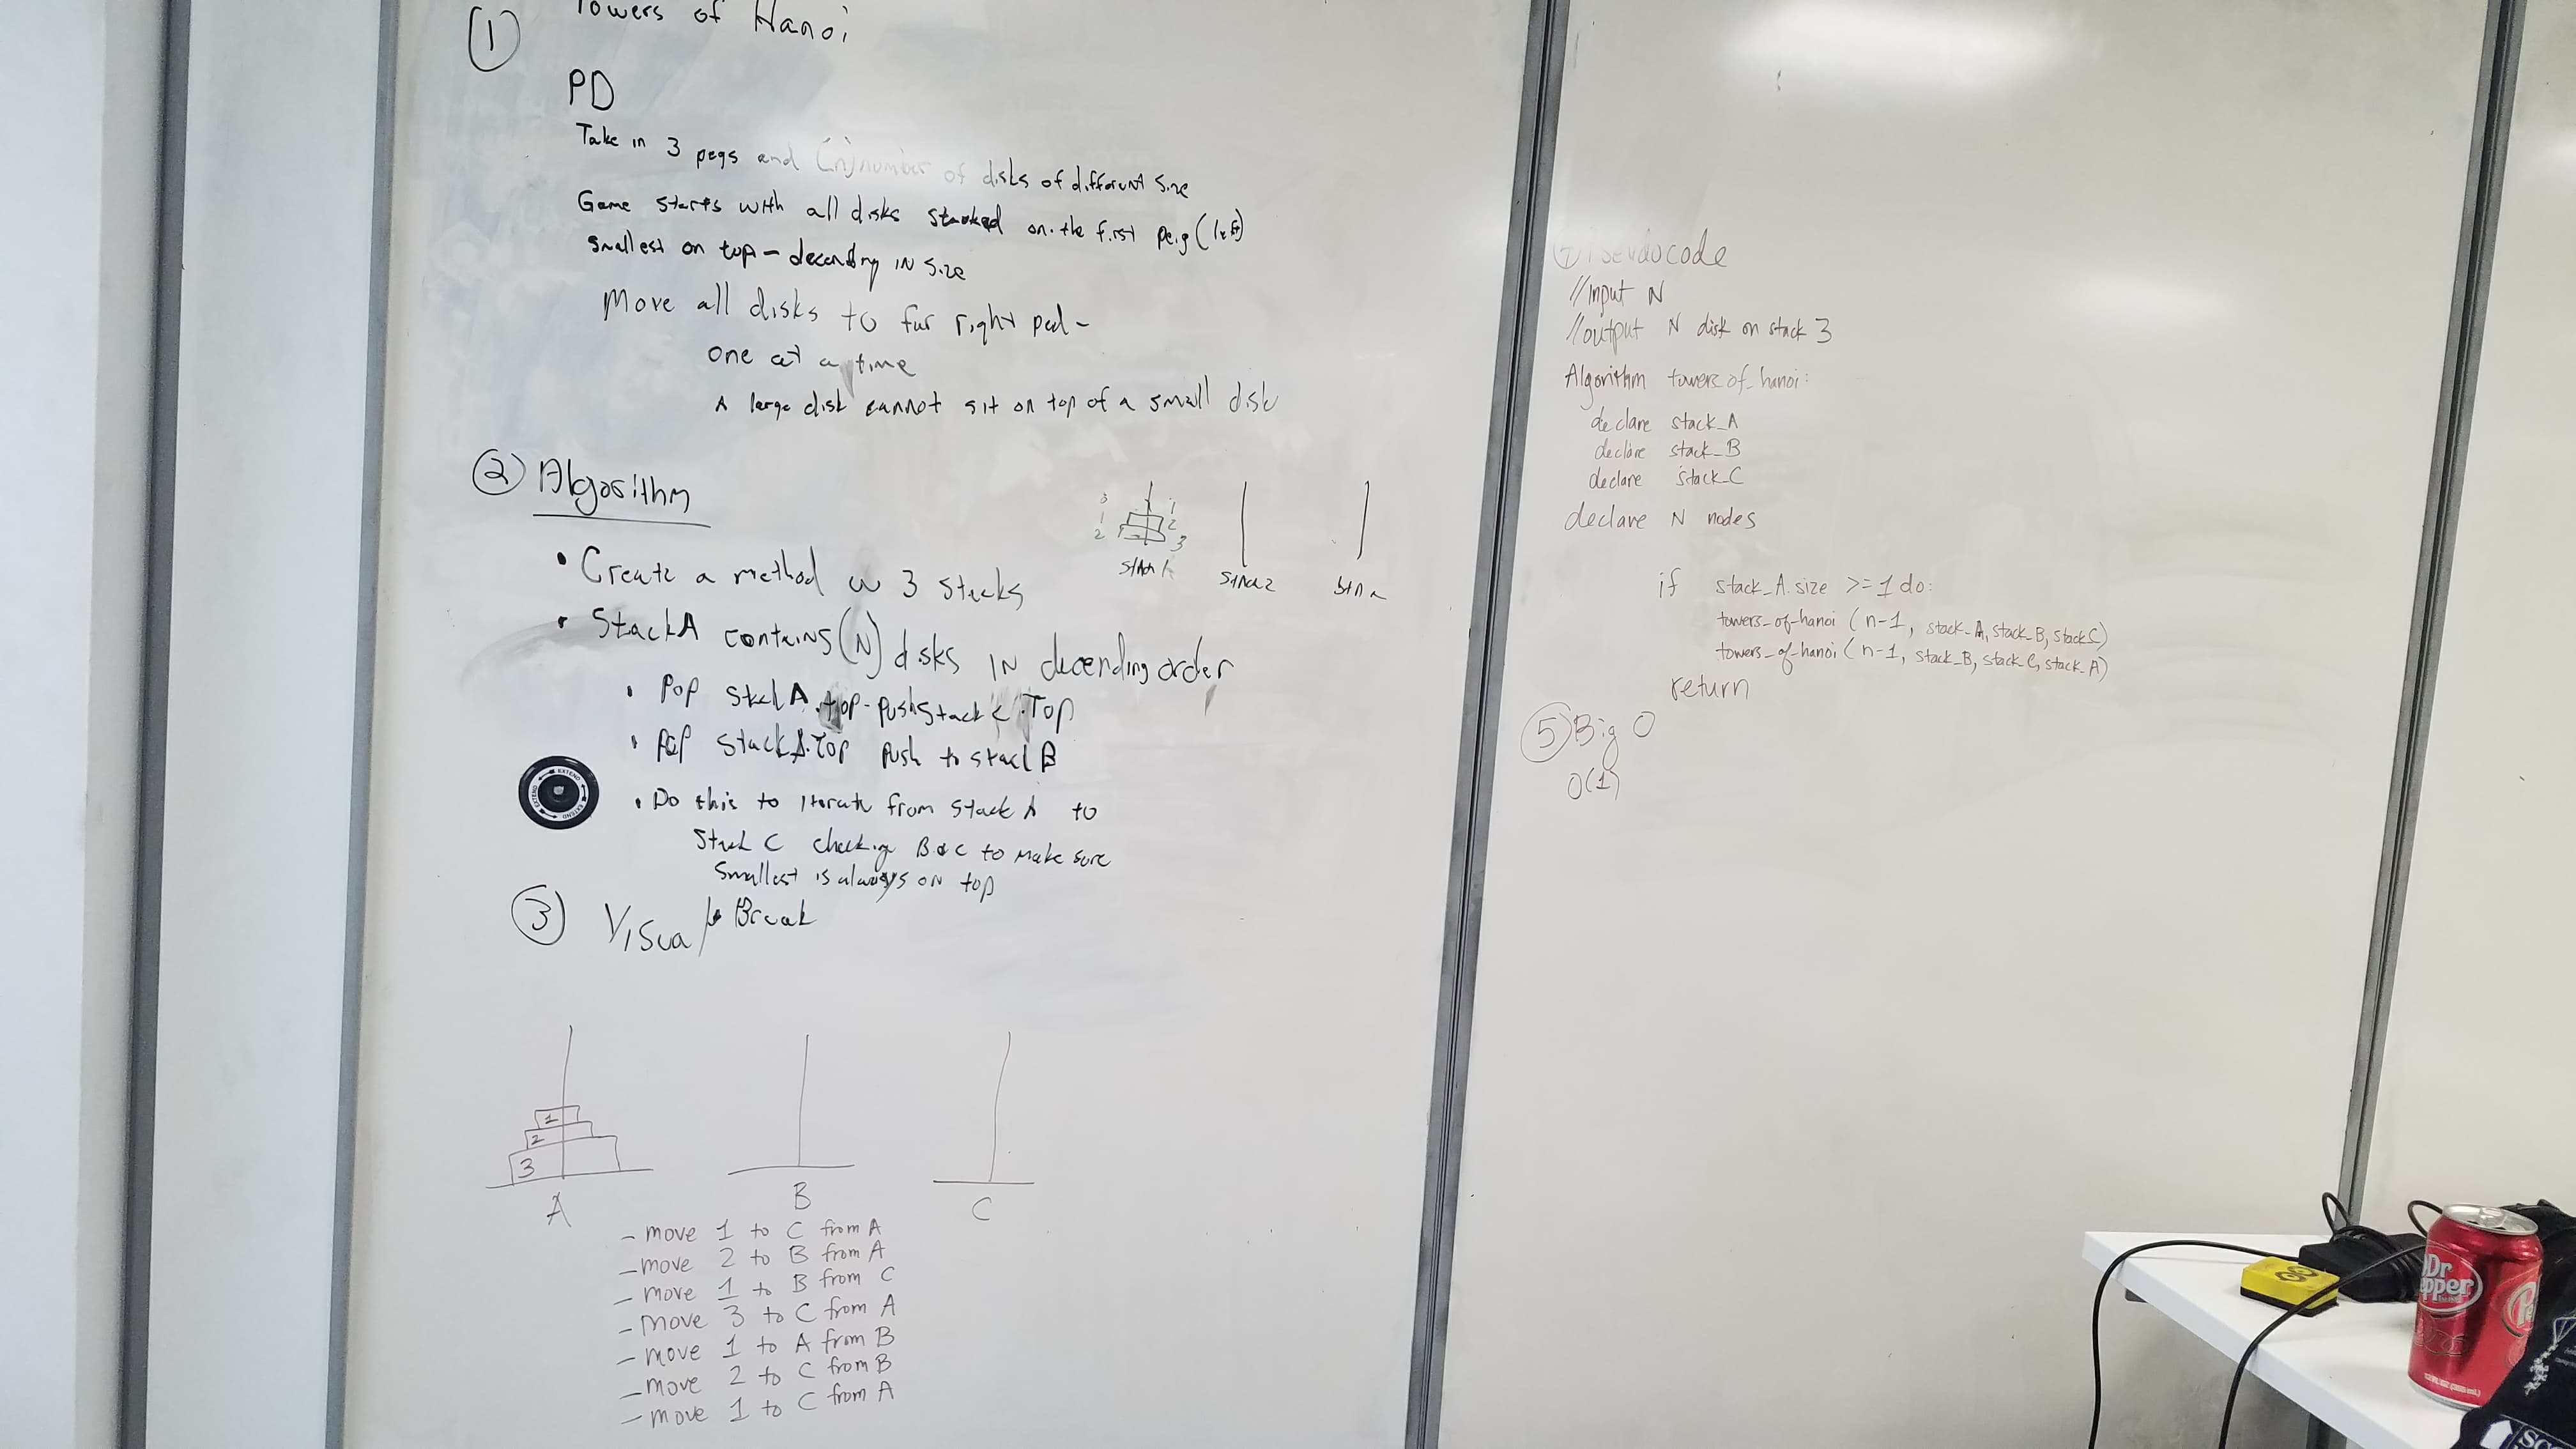 (1) Towers of Hanoi
PD
Take in 3 pegs and (n) number of disks of different size
Game starts with all disks stacked on the first peig (left)
smallest on top - decending in size
Move all disks to far right ped -
one at a time
A large disk cannot sit on top of a small disk
(2) Algorithm
3 1
1 2
2 3
stack 1 stack 2
• Create a method w 3 stacks
• Stack A contains (N) disks IN decending order
• Pop stack A.top - push stack C.Top
• Pop stack A.Top push to stack B
• Do this to iterate from stack A to
Stack C checking B & C to make sure
smallest is always on top
(3) Visual Break
1
2
3
A B C
- move 1 to C from A
- move 2 to B from A
- move 1 to B from C
- move 3 to C from A
- move 1 to A from B
- move 2 to C from B
- move 1 to C from A
(4) Pseudocode
//input N
//output N disk on stack 3
Algorithm towers_of_hanoi:
declare stack_A
declare stack_B
declare stack_C
declare N nodes
if stack_A.size >= 1 do:
towers_of_hanoi (n-1, stack_A, stack_B, stack C)
towers_of_hanoi (n-1, stack_B, stack_C, stack_A)
return
(5) Big O
O(1)
EXTEND EXTEND EXTEND
Dr Pepper